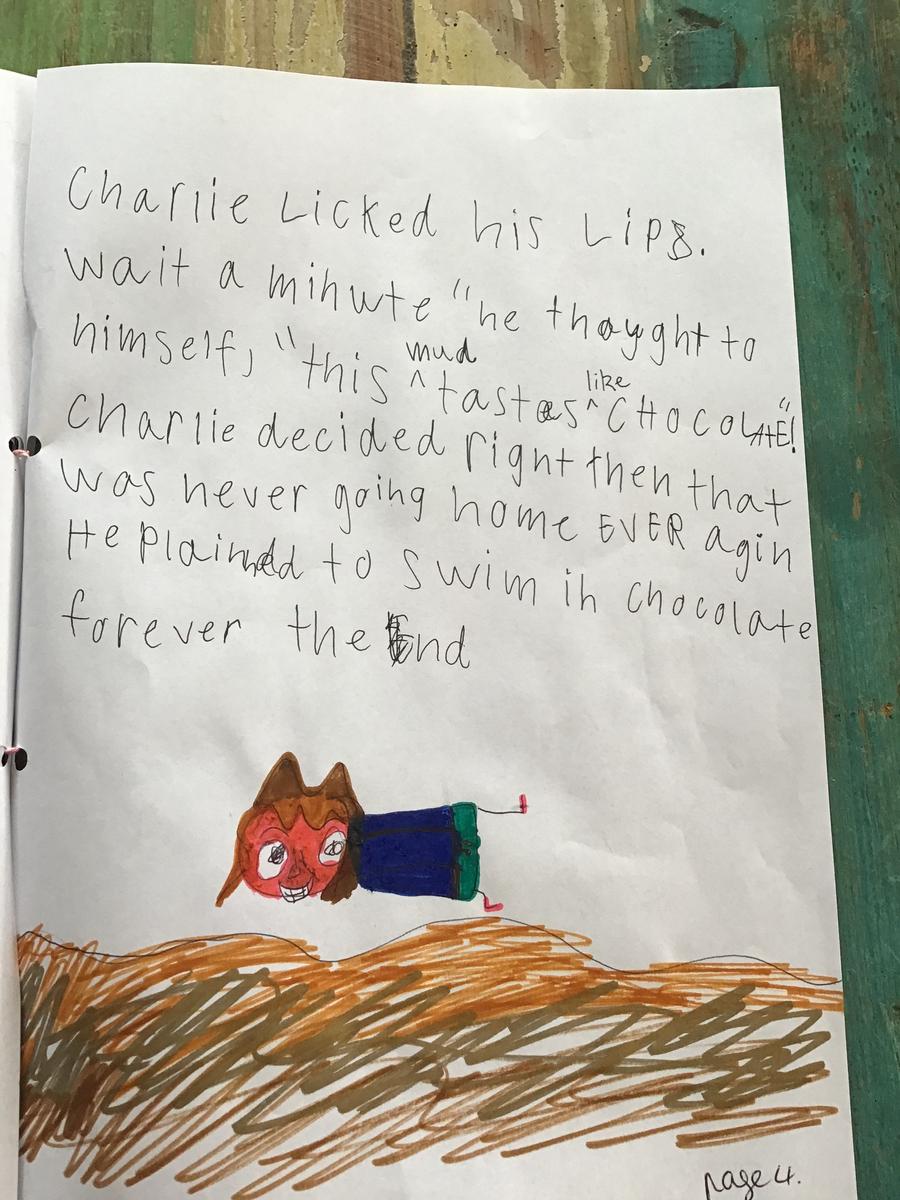 Charlie Licked his Lips.
wait a minute "he thought to
himself, "this mud tastes like CHOCOLATE!"
Charlie decided right then that
was never going home EVER agin
He plainned to swim in chocolate
forever the End
page 4.